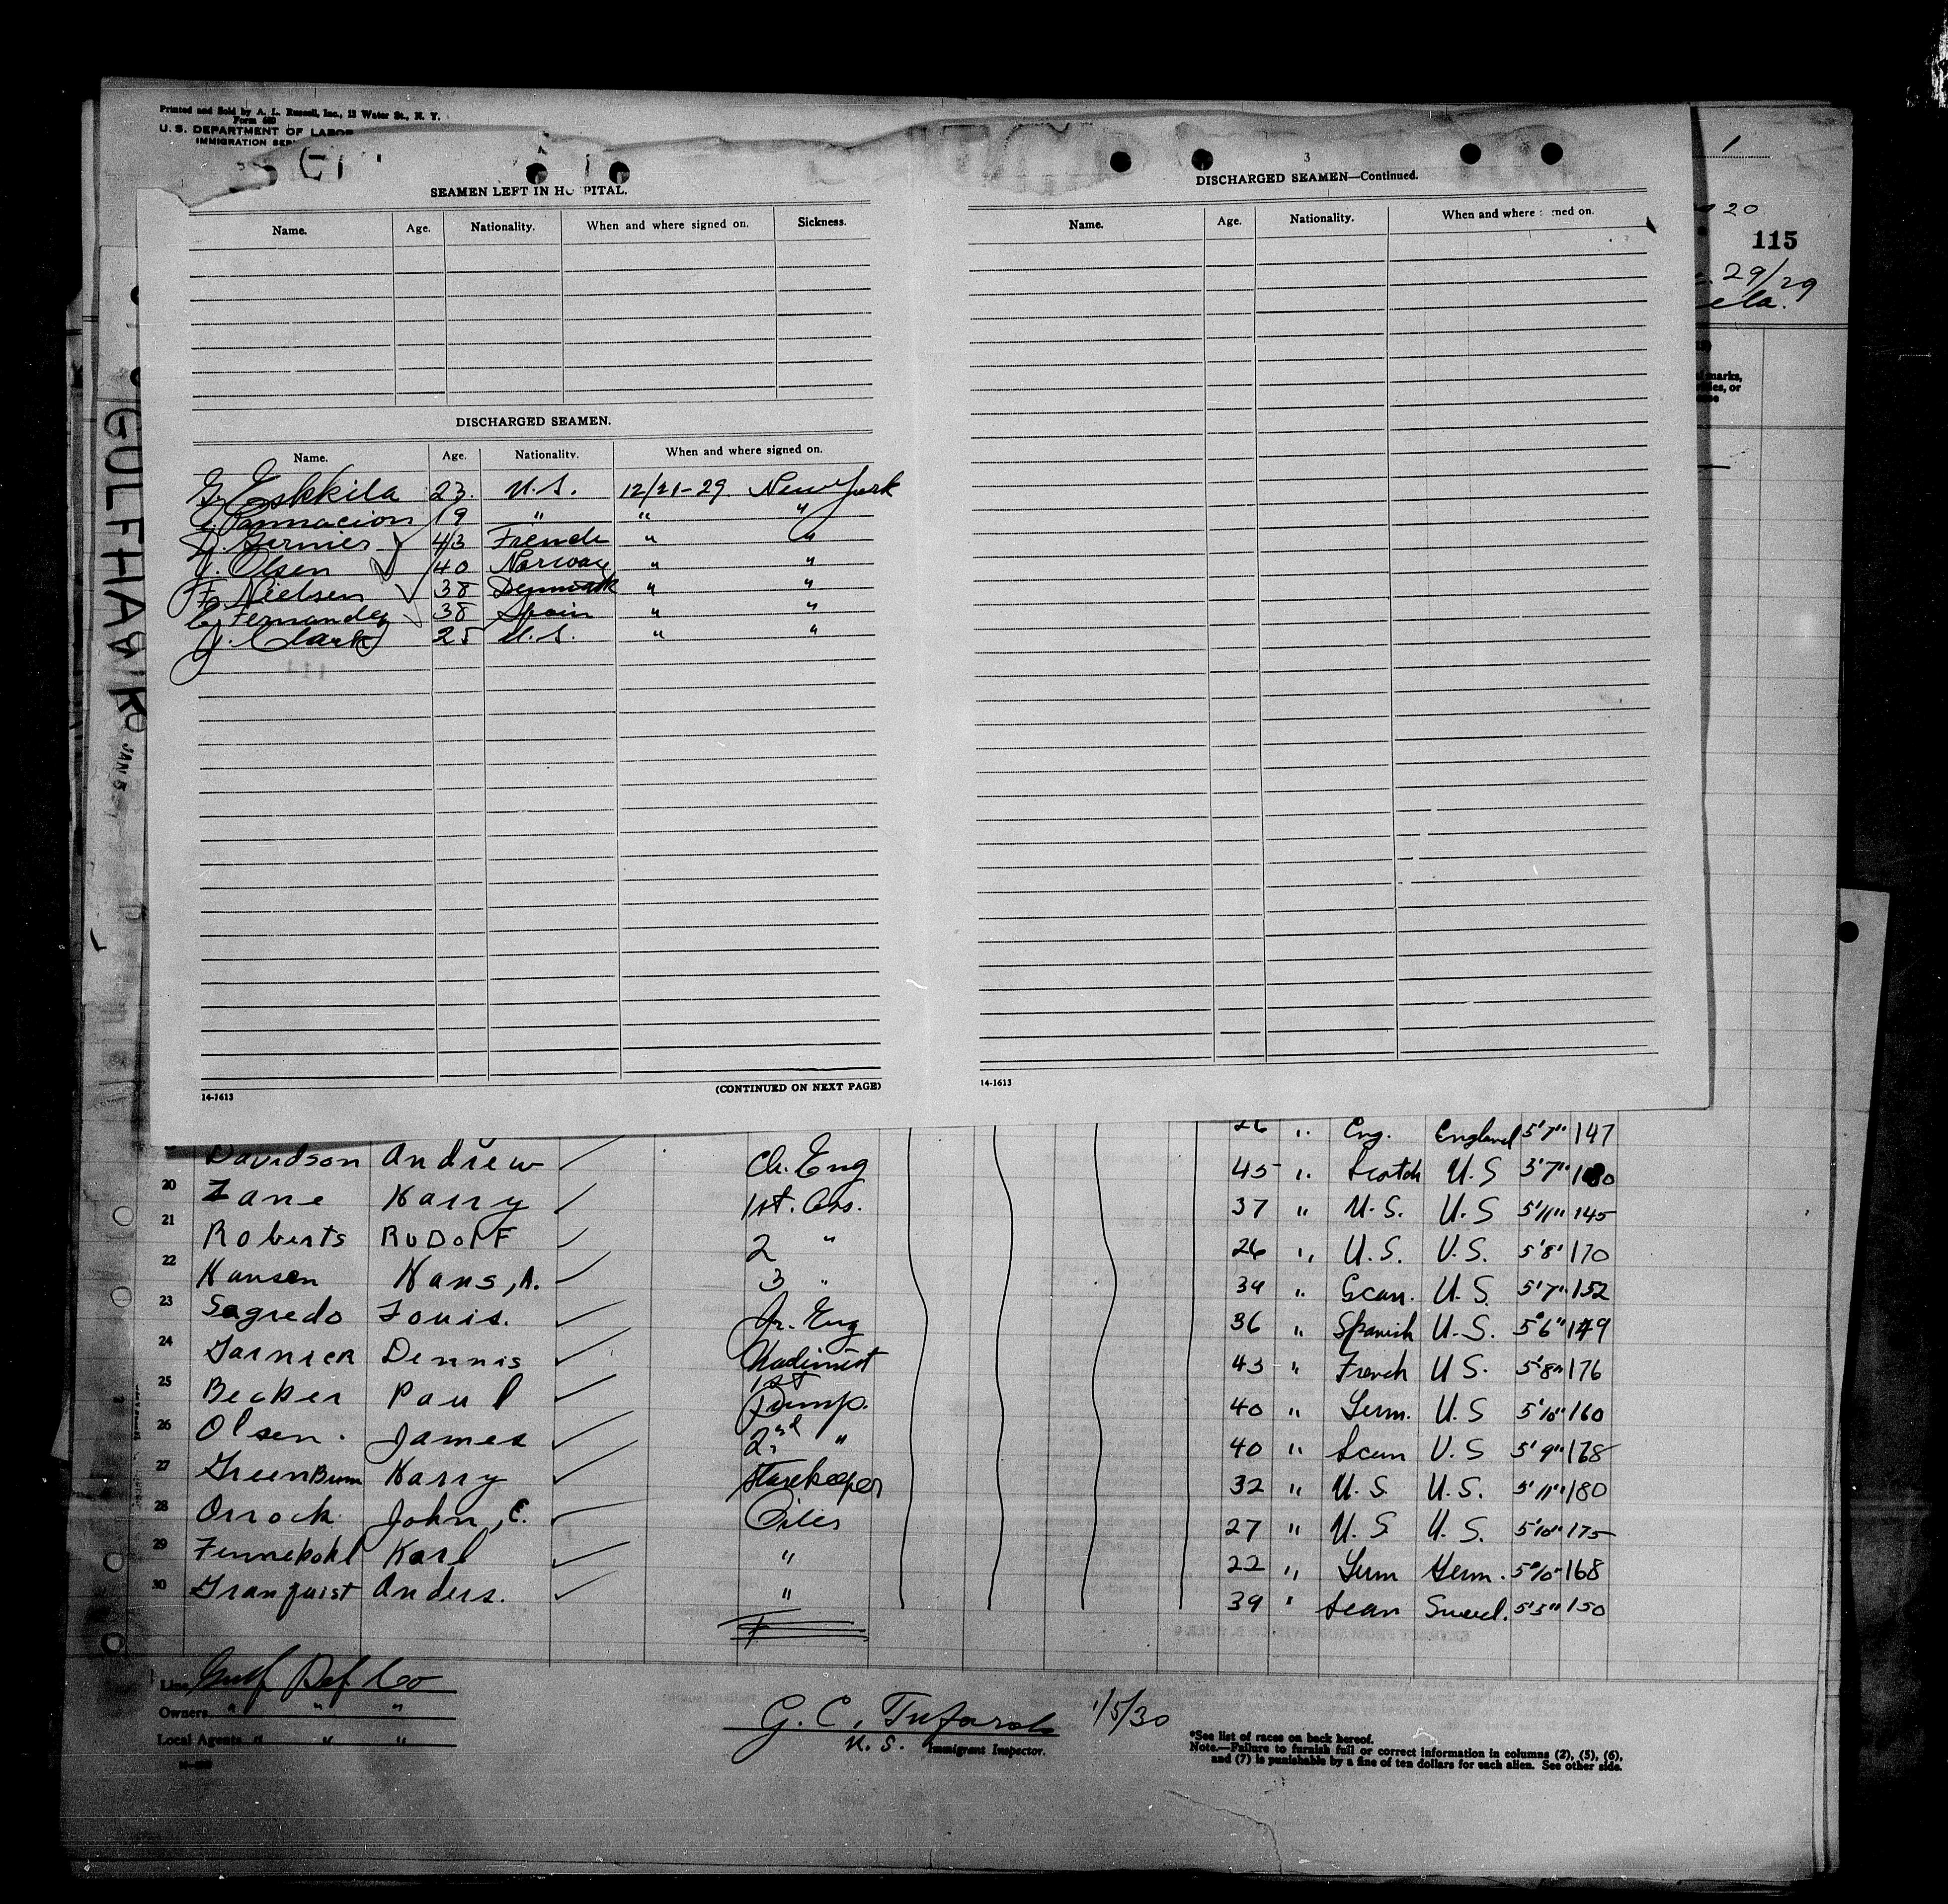 Printed and Sold by A. L. Russell, Inc., 13 Water St., N. Y.
Form 680
U. S. DEPARTMENT OF LABOR
IMMIGRATION
SEAMEN LEFT IN HOSPITAL.
Name. Age. Nationality. When and where signed on. Sickness.
DISCHARGED SEAMEN.
Name. Age. Nationality. When and where signed on.
G. Eskkila 23. U.S. 12/21-29 New York
19 " " "
Germier 43 French " "
J. Olsen 40 Norway " "
F. Nielsen 38 Denmark " "
C. Fernandez 38 Spain " "
J. Clark 25 U.S. " "
14-1613 (CONTINUED ON NEXT PAGE)
3
DISCHARGED SEAMEN—Continued.
Name. Age. Nationality. When and where signed on.
14-1613
1
20
115
29/29
ela.
marks,
or
GULFHAWK
JAN 5
26 " Eng. England 5'7" 147
Davidson Andrew Ch. Eng 45 " Scotch U.S 5'7" 180
20 Zane Harry 1st. Ass. 37 " U.S. U.S 5'11" 145
21 Roberts RUDOLF 2 " 26 " U.S. U.S. 5'8" 170
22 Hansen Hans, A. 3 " 39 " Scan. U.S. 5'7" 152
23 Sagredo Louis. Jr. Eng 36 " Spanish U.S. 5'6" 149
24 Garnier Dennis Machinist 43 " French U.S. 5'8" 176
25 Becker Paul 1st Pump. 40 " Germ. U.S 5'10" 160
26 Olsen. James 2nd " 40 " Scan U.S 5'9" 178
27 GreenBum Harry Storekeeper 32 " U.S U.S. 5'11" 180
28 Orrock John, C. Oiler 27 " U.S U.S. 5'10" 175
29 Fennekohl Karl " 22 " Germ Germ. 5'10" 168
30 Granquist Anders. " 39 " Scan Swed. 5'5" 150
Line Gulf Ref Co
Owners " " "
Local Agents " " "
G. C. 1/5/30
U. S. Immigrant Inspector.
*See list of races on back hereof.
Note.—Failure to furnish full or correct information in columns (2), (5), (6),
and (7) is punishable by a fine of ten dollars for each alien. See other side.